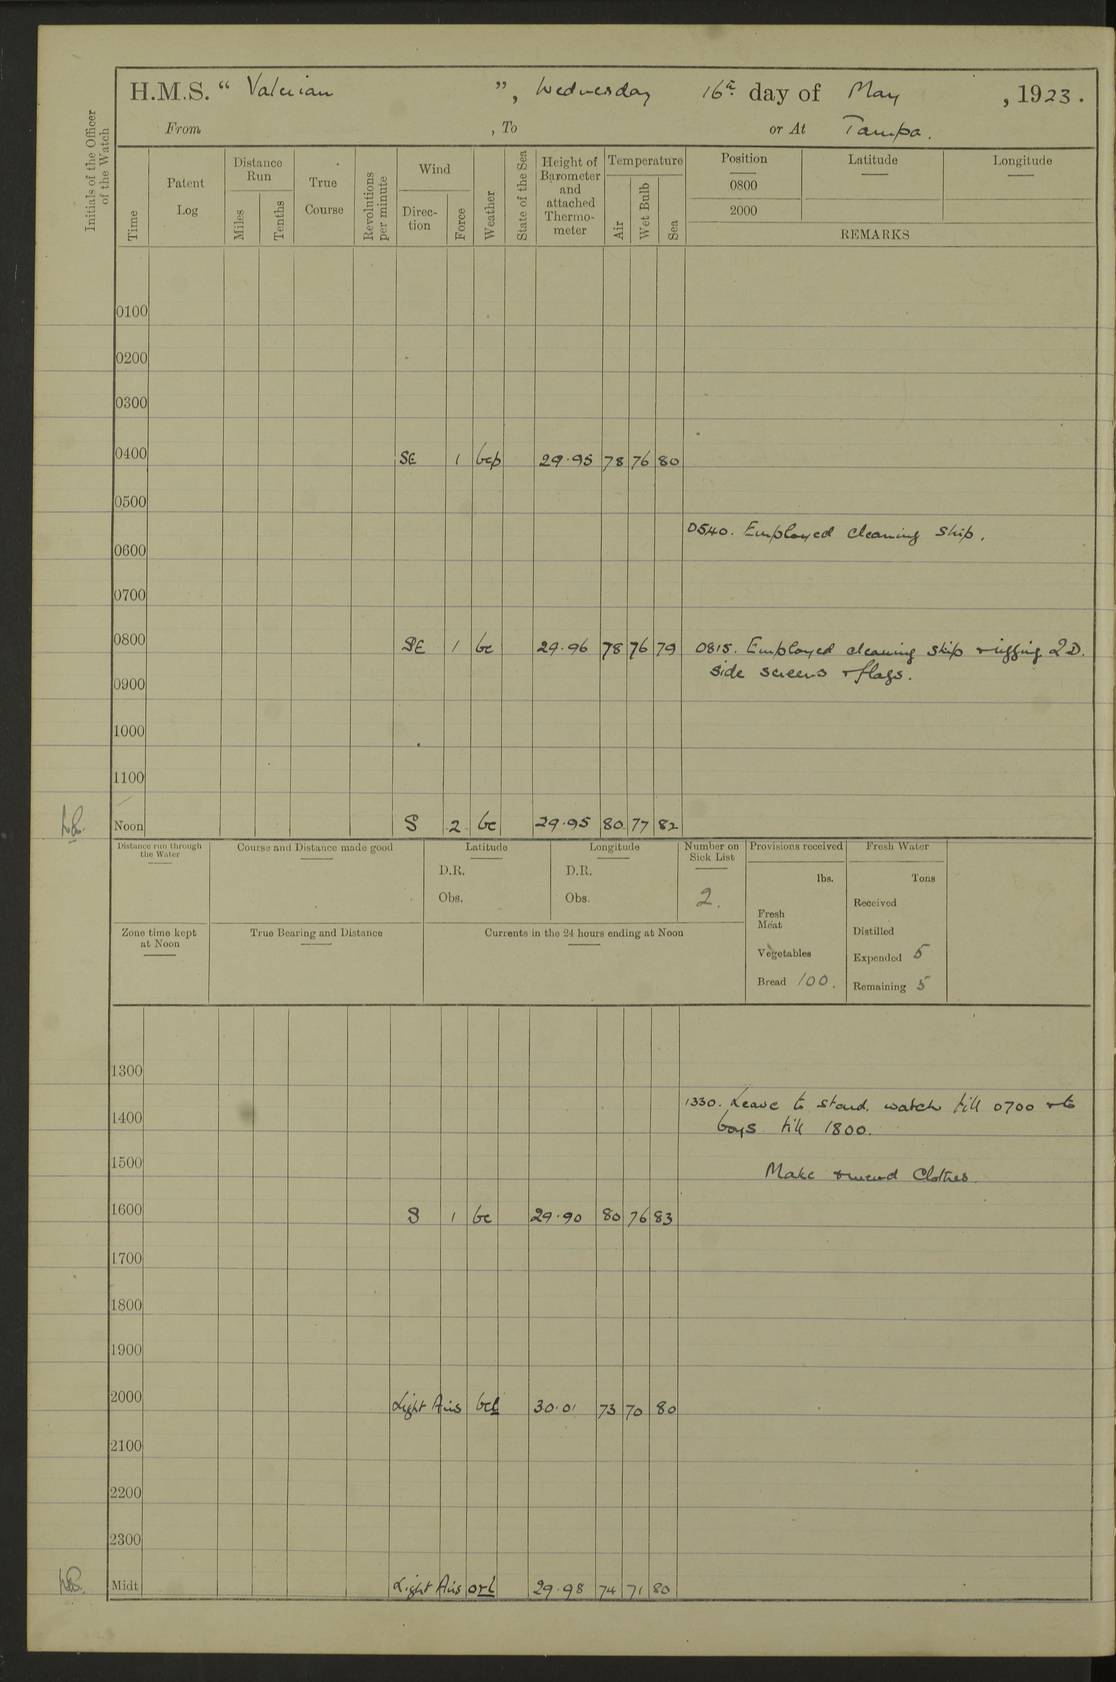 H.M.S. “ Valerian ”, Wednesday 16th day of May , 1923.
From , To or At Tampa.
Initials of the Officer of the Watch
Time
Patent Log
Distance Run
Miles
Tenths
True Course
Revolutions per minute
Wind
Direc-tion
Force
Weather
State of the Sea
Height of Barometer and attached Thermo-meter
Temperature
Air
Wet Bulb
Sea
Position
0800
2000
Latitude
Longitude
REMARKS
0100
0200
0300
0400 SE 1 bcp 29.95 78 76 80
0500
0540. Employed cleaning ship.
0600
0700
0800 SE 1 bc 29.96 78 76 79 0815. Employed cleaning ship & rigging Q.D.
side screens & flags.
0900
1000
1100
Noon S 2 bc 29.95 80 77 82
Distance run through the Water
Course and Distance made good
Latitude
D.R.
Obs.
Longitude
D.R.
Obs.
Number on Sick List
2.
Provisions received
lbs.
Fresh Meat
Vegetables
Bread 100.
Fresh Water
Tons
Received
Distilled
Expended 5
Remaining 5
Zone time kept at Noon
True Bearing and Distance
Currents in the 24 hours ending at Noon
1300
1330. Leave to starbd. watch till 0700 & to
1400
boys till 1800.
1500
Make & mend Clothes.
1600 S 1 bc 29.90 80 76 83
1700
1800
1900
2000 Light Airs bcl 30.01 73 70 80
2100
2200
2300
Midt Light Airs orl 29.98 74 71 80